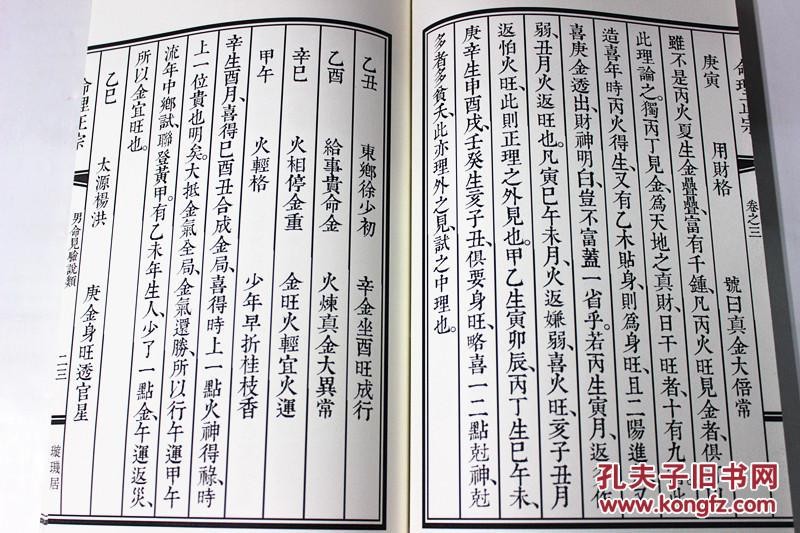 命理正宗
卷之三
庚寅 用財格 號曰真金大倍常
雖不是丙火夏生金疊疊富有千鍾凡丙火旺見金者俱
此理論之獨丙丁見金為天地之真財日干旺者十有九
造喜年時丙火得生又有乙木貼身則為身旺且二陽進
喜庚金透出財神明白豈不富蓋一省乎若丙生寅月返
弱丑月火返旺也凡寅巳午未月火返嫌弱喜火旺亥子丑月
返怕火旺此則正理之外見也甲乙生寅卯辰丙丁生巳午未
庚辛生申酉戌壬癸生亥子丑俱要身旺略喜一二點尅神尅
多者多貧夭此亦理外之見試之中理也
乙丑 東鄉徐少初 辛金坐酉旺成行
乙酉 給事貴命金 火煉真金大異常
辛巳 火相停金重 金旺火輕宜火運
甲午 火輕格 少年早折桂枝香
辛生酉月喜得巳酉丑合成金局喜得時上一點火神得祿時
上一位貴也明矣大抵金氣全局金氣還勝所以行午運甲午
流年中鄉試聯登黃甲有乙未年生人少了一點金午運返災
所以金宜旺也
乙巳 太源楊洪 庚金身旺透官星
命理正宗
男命見驗說類
二三
璇璣居
孔夫子旧书网
www.kongfz.com